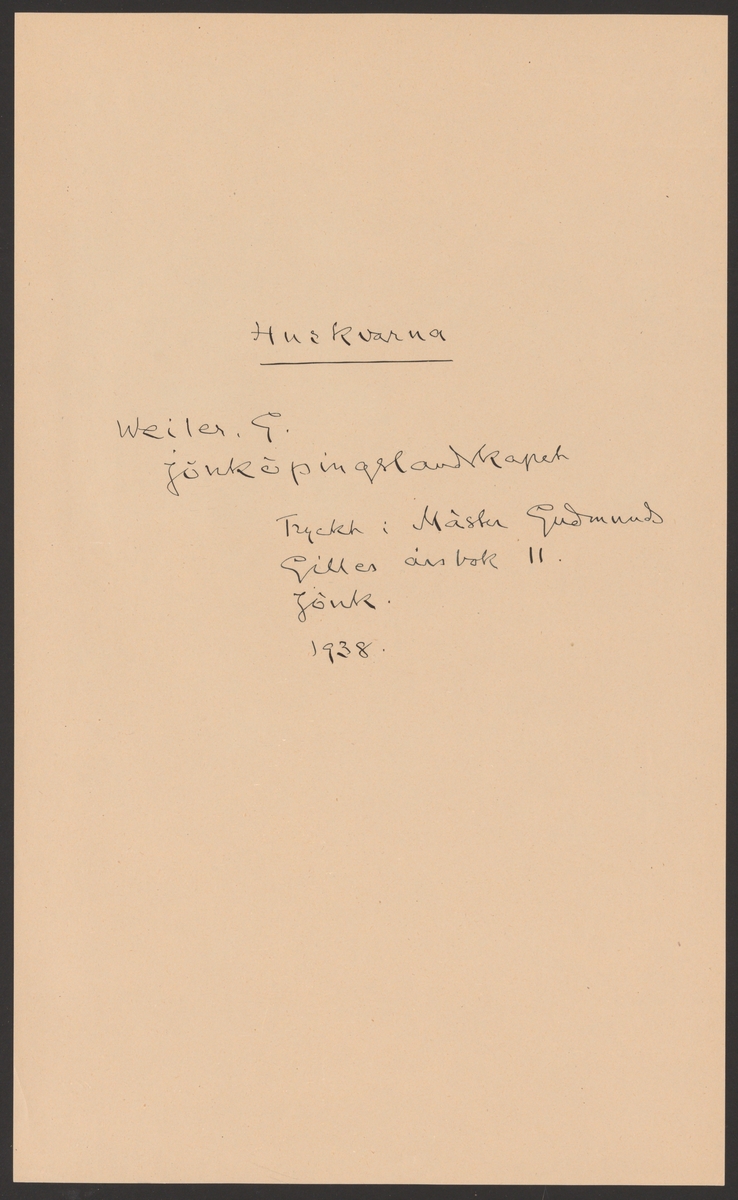 Huskvarna
Weiler, G.
Jönköpingslandskapet
Tryckt i Mäster Gudmunds
Gilles årsbok II.
Jönk.
1938.